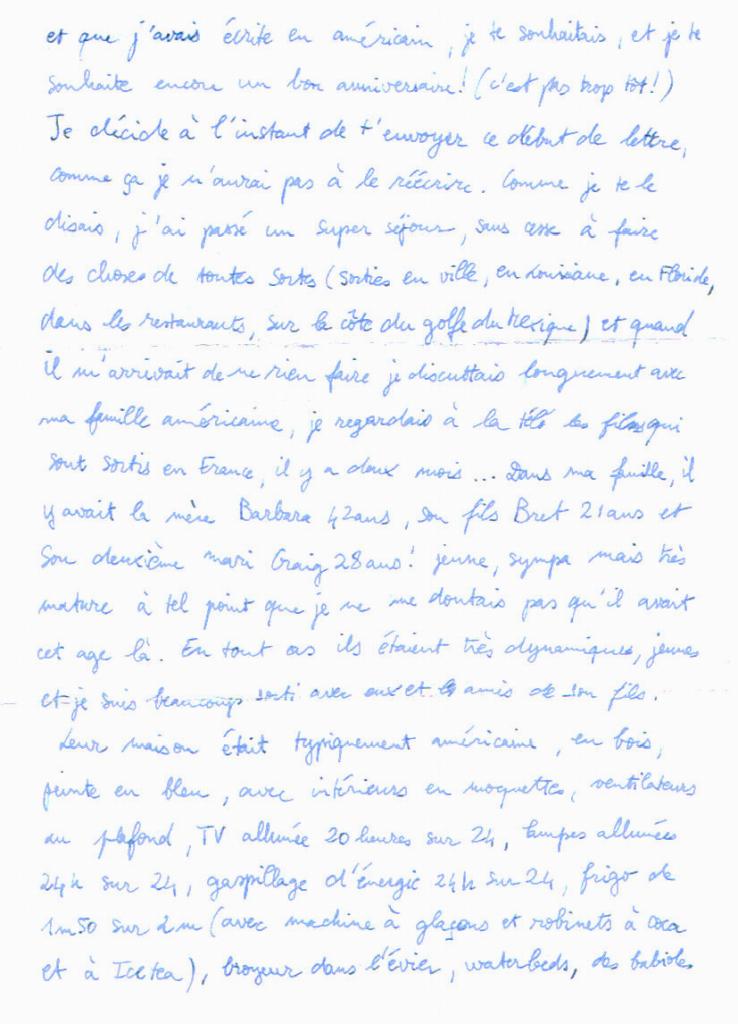 et que j'avais écrite en américain, je te souhaitais, et je te
souhaite encore un bon anniversaire! (c'est pas trop tôt!)
Je décide à l'instant de t'envoyer ce début de lettre,
comme ça je n'aurai pas à le réécrire. Comme je te le
disais, j'ai passé un super séjour, sans cesse à faire
des choses de toutes sortes (sorties en ville, en Louisiane, en Floride,
dans les restaurants, sur la côte du golfe du Mexique) et quand
il m'arrivait de ne rien faire je discuttais longuement avec
ma famille américaine, je regardais à la télé les films qui
sont sortis en France, il y a deux mois... Dans ma famille, il
y avait la mère Barbara 42 ans, son fils Bret 21 ans et
son deuxième mari Craig 28 ans! jeune, sympa mais très
mature à tel point que je ne me doutais pas qu'il avait
cet age là. En tout cas ils étaient très dynamiques, jeunes
et je suis beaucoup sorti avec eux et les amis de son fils.
Leur maison était typiquement américaine, en bois,
peinte en bleu, avec intérieurs en moquettes, ventilateurs
au plafond, TV allumée 20 heures sur 24, lampes allumées
24h sur 24, gaspillage d'énergie 24h sur 24, frigo de
1m50 sur 2m (avec machine à glaçons et robinets à coca
et à Ice tea), broyeur dans l'évier, waterbeds, des babioles